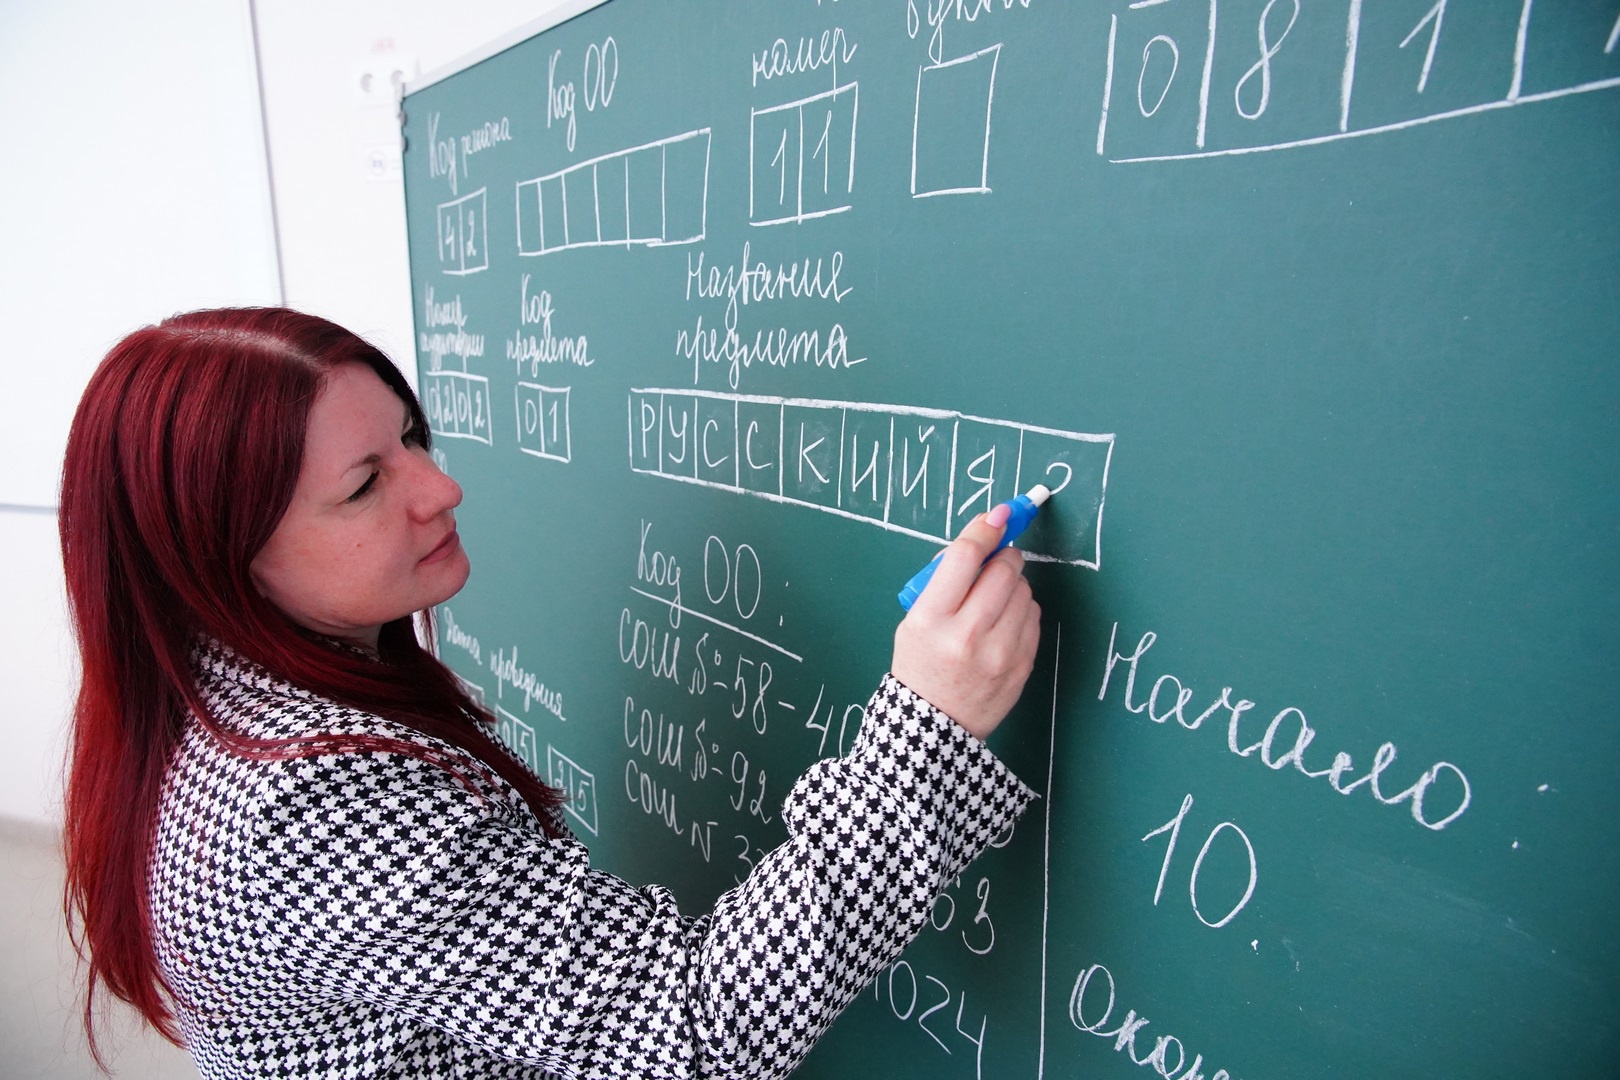 Код региона Код ОО номер
42 11 0811
Номер аудитории Код предмета Название предмета
0202 01 РУССКИЙ Я
Код ОО:
СОШ № 58 - 40
СОШ № 92
СОШ №
63
1024
Дата проведения
05 25
Начало
10.